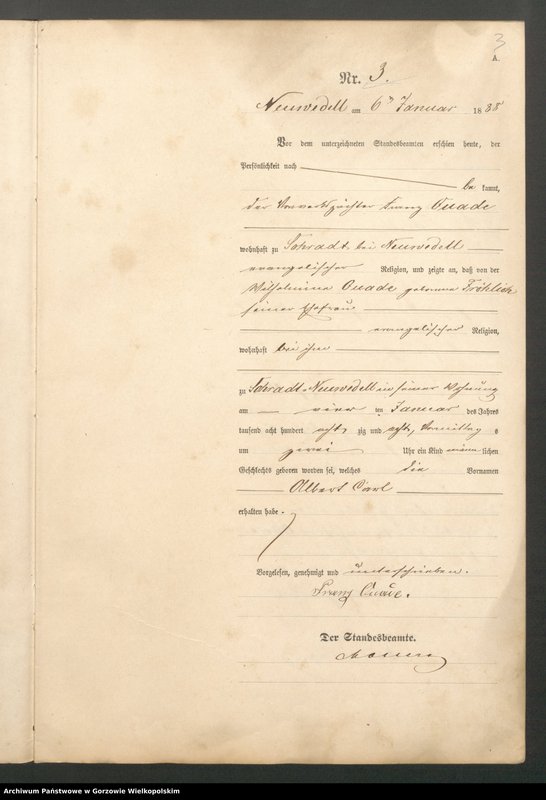 3
A.
Nr. 3.
Neuwedell am 6ten Januar 1888
Vor dem unterzeichneten Standesbeamten erschien heute, der
Persönlichkeit nach
be kannt,
der Vorwerkpächter Franz Quade
wohnhaft zu bei Neuwedell
evangelischer Religion, und zeigte an, daß von der
Wilhelmine Quade geborene Fröhlich
seiner Ehefrau
evangelischer Religion,
wohnhaft bei ihm
zu Neuwedell in seiner Wohnung
am vier ten Januar des Jahres
tausend acht hundert acht zig und acht, Vormittag s
um zwei Uhr ein Kind männ lichen
Geschlechts geboren worden sei, welches die Vornamen
Albert Carl
erhalten habe.
Vorgelesen, genehmigt und unterschrieben.
Franz Quade.
Der Standesbeamte.
Archiwum Państwowe w Gorzowie Wielkopolskim